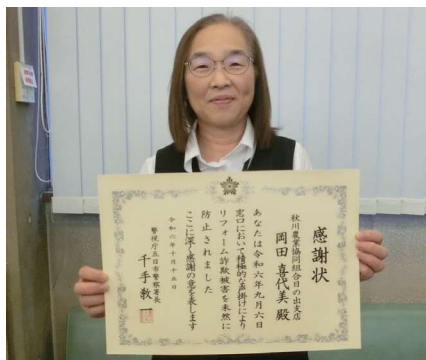 感謝状
秋川農業協同組合日の出支店
岡田喜代美殿
あなたは令和六年九月六日
窓口において積極的な声掛けにより
リフォーム詐欺被害を未然に
防止されました
ここに深く感謝の意を表します
令和六年十月十五日
警視庁五日市警察署長
千手敦